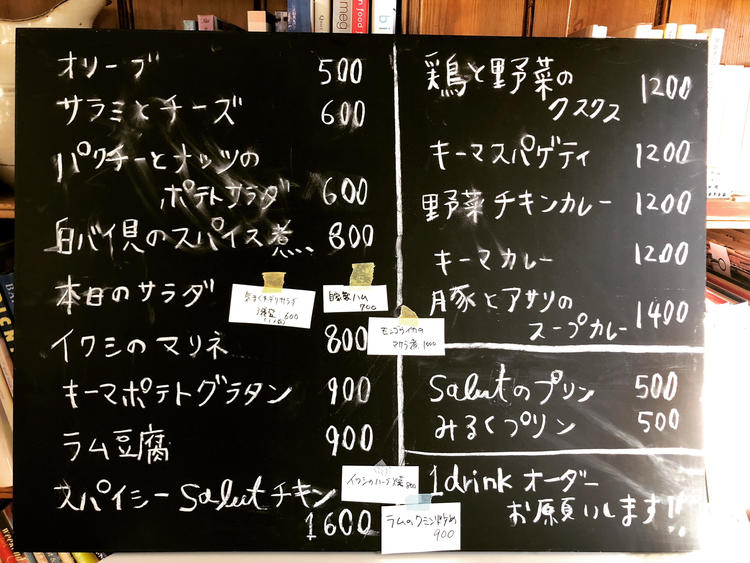 オリーブ 500
サラミとチーズ 600
パクチーとナッツの
ポテトサラダ 600
白バイ貝のスパイス煮 800
本日のサラダ
3種盛 600
自家製ハム
700
イワシのマリネ 800
モンゴウイカの
マクラ煮 1000
キーマポテトグラタン 900
ラム豆腐 900
スパイシーSalutチキン
1600
鶏と野菜の
クスクス 1200
キーマスパゲティ 1200
野菜チキンカレー 1200
キーマカレー 1200
豚とアサリの
スープカレー 1400
Salutのプリン 500
みるくプリン 500
イワシのハーブ焼 800
1drinkオーダー
お願いします!!
ラムのクミン炒め
900